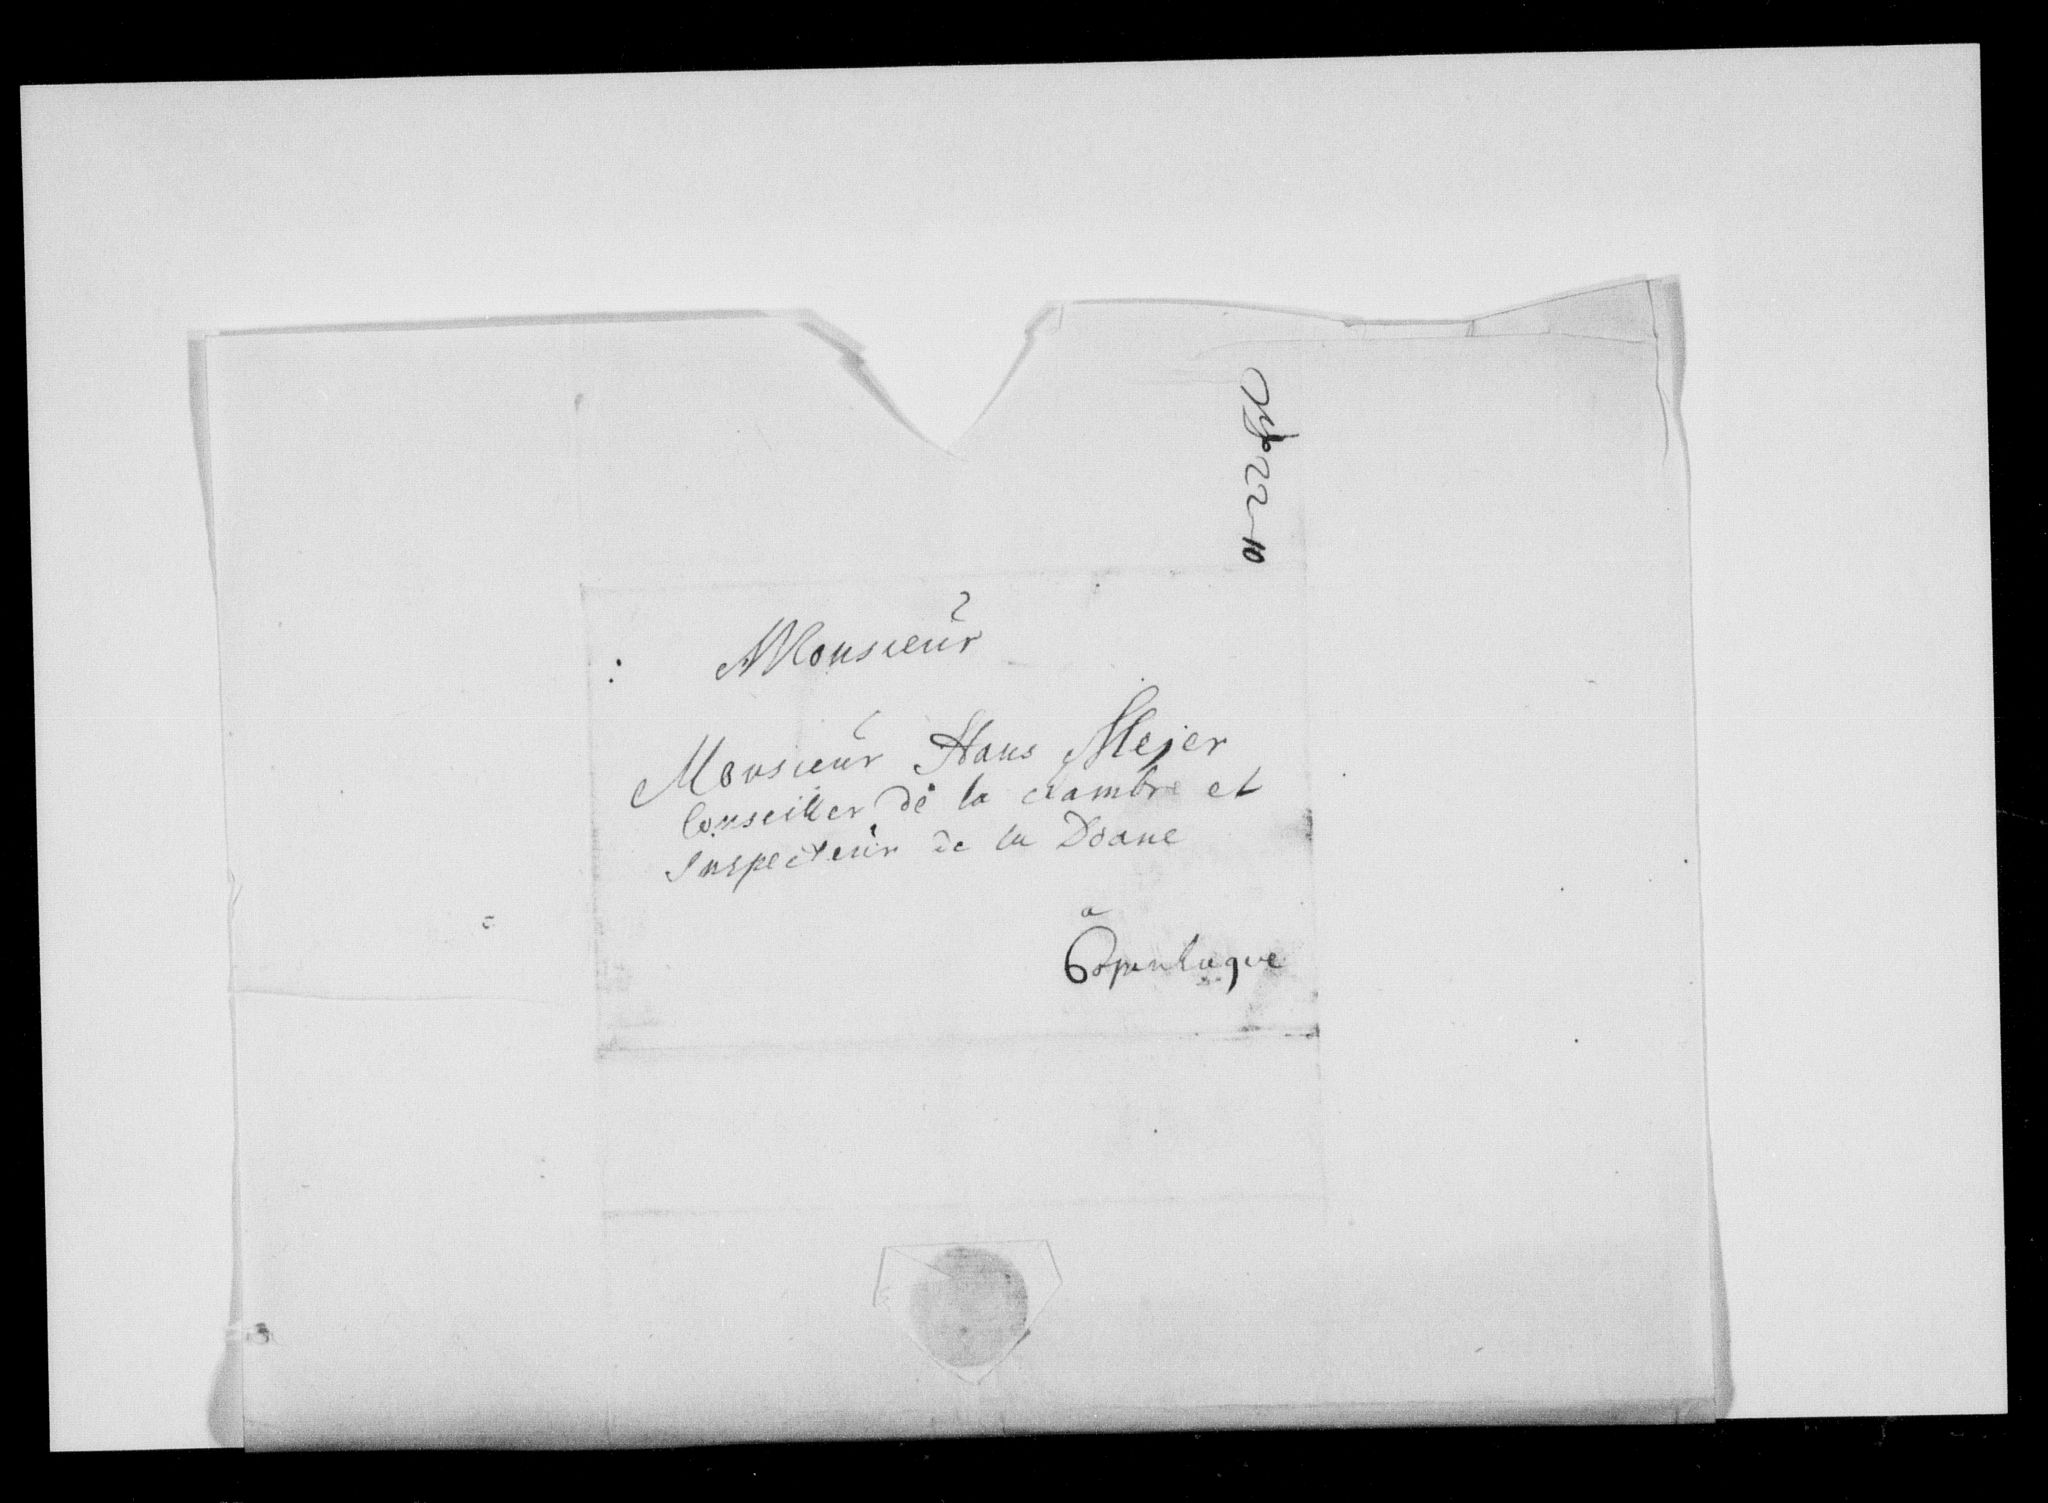 22-10
Monsieur
Monsieur Hans Mejer
Conseiller de la cambre et
Inspecteur de la Doane
a
Copenhague